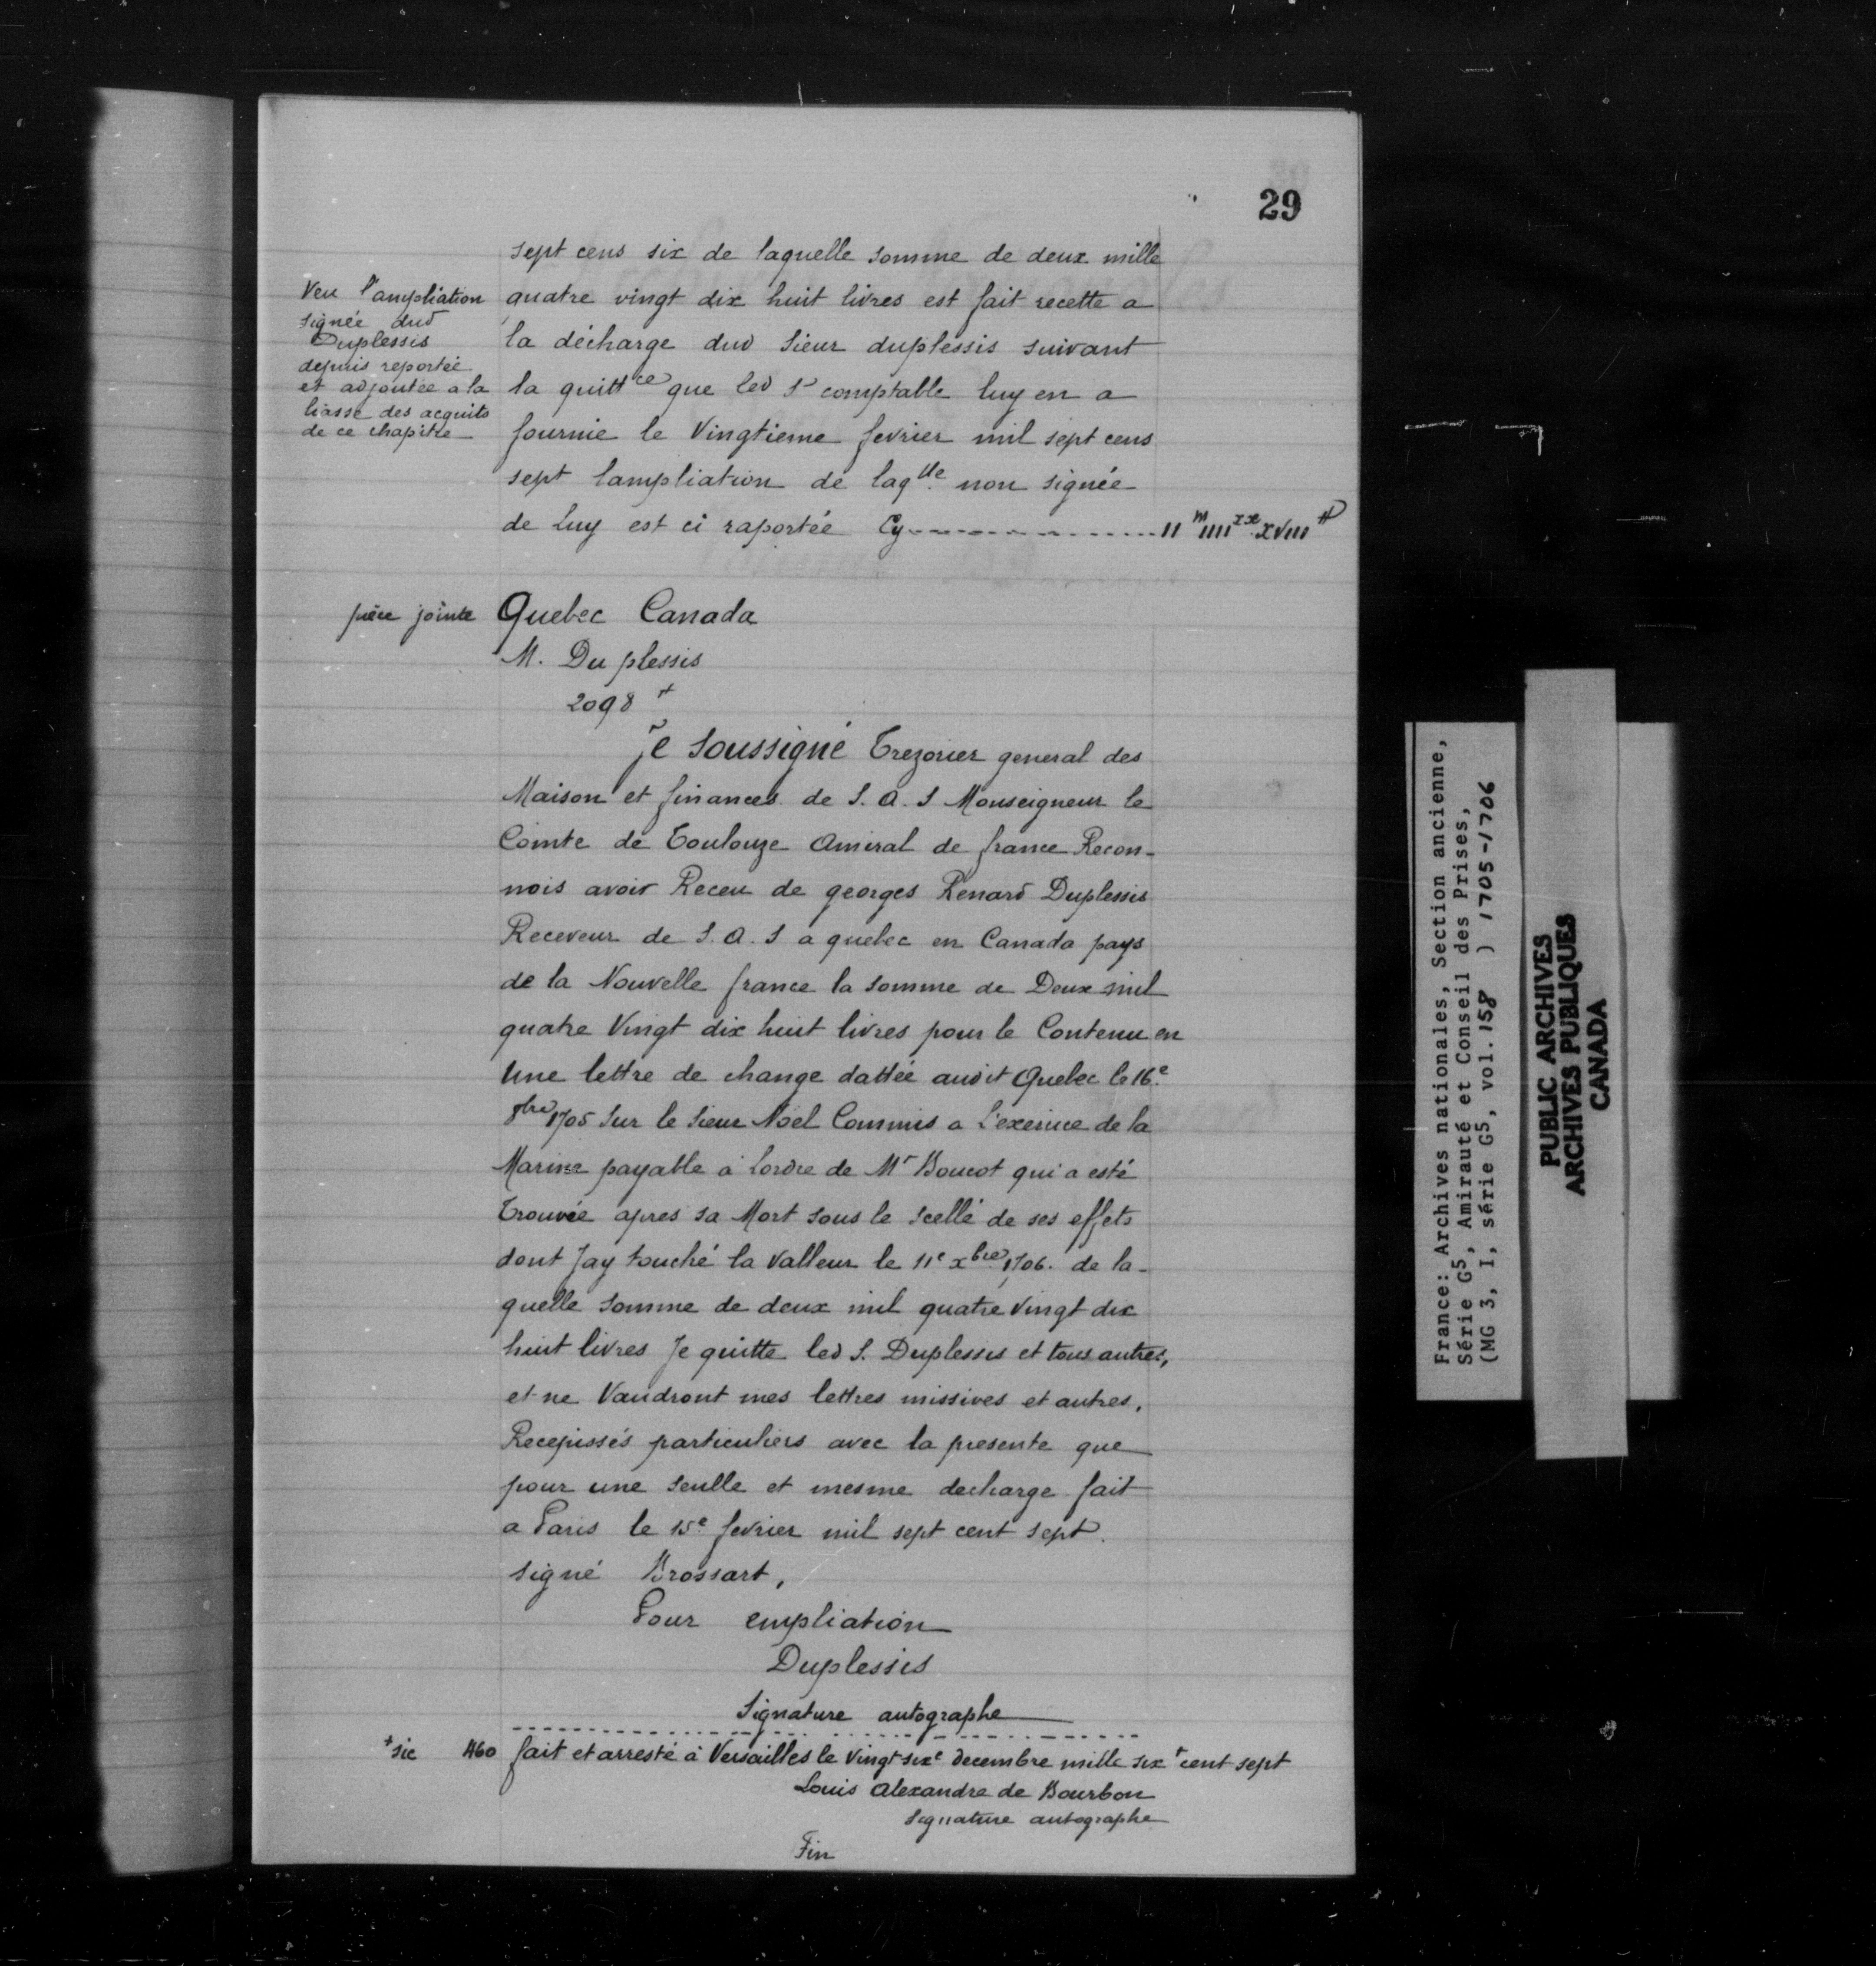 29
sept cens six de laquelle somme de deux mille
quatre vingt dix huit livres est fait recette a
la décharge dud Sieur duplessis suivant
la quittce que led Sr comptable luy en a
fournie le Vingtieme fevrier mil sept cens
sept lampliation de laqlle non signée
de Luy est ci raportée Cy..............IIm IIIIxx XVIII#
Veu l'ampliation
signée dud
Duplessis
depuis reportée
et adjoutée a la
liasse des acquits
de ce chapitre
pièce jointe Quebec Canada
M. Du plessis
2098#
Je soussigné Trezorier general des
Maison et finances de S. A. S Monseigneur le
Comte de Toulouze Amiral de france Recon-
nois avoir Receu de georges Renard Duplessis
Receveur de S. A. S a quebec en Canada pays
de la Nouvelle france la somme de Deux mil
quatre Vingt dix huit livres pour le Contenu en
Une lettre de change dattée audit Quebec le 16e
8bre 1705 sur le Sieur Noel Commis a L'exercice de la
Marine payable a lordre de Mr Boucot qui a esté
Trouvée apres sa Mort sous le scellé de ses effets
dont Jay touché la Valleur le 11e xbre 1706. de la-
quelle somme de deux mil quatre Vingt dix
huit livres Je quitte led S. Duplessis et tous autres,
et ne Vaudront mes lettres missives et autres,
Recepissés particuliers avec la presente que
pour une seulle et mesme decharge fait
a Paris le 15e fevrier mil sept cent sept.
signé Brossart,
Pour empliation
Duplessis
Signature autographe
+sic 460 fait et arresté à Versailles le Vingt sixe decembre mille six+ cent sept
Louis Alexandre de Bourbon
Signature autographe
Fin
France: Archives nationales, Section ancienne,
Série G5, Amirauté et Conseil des Prises,
(MG 3, I, série G5, vol. 158 ) 1705-1706
PUBLIC ARCHIVES
ARCHIVES PUBLIQUES
CANADA